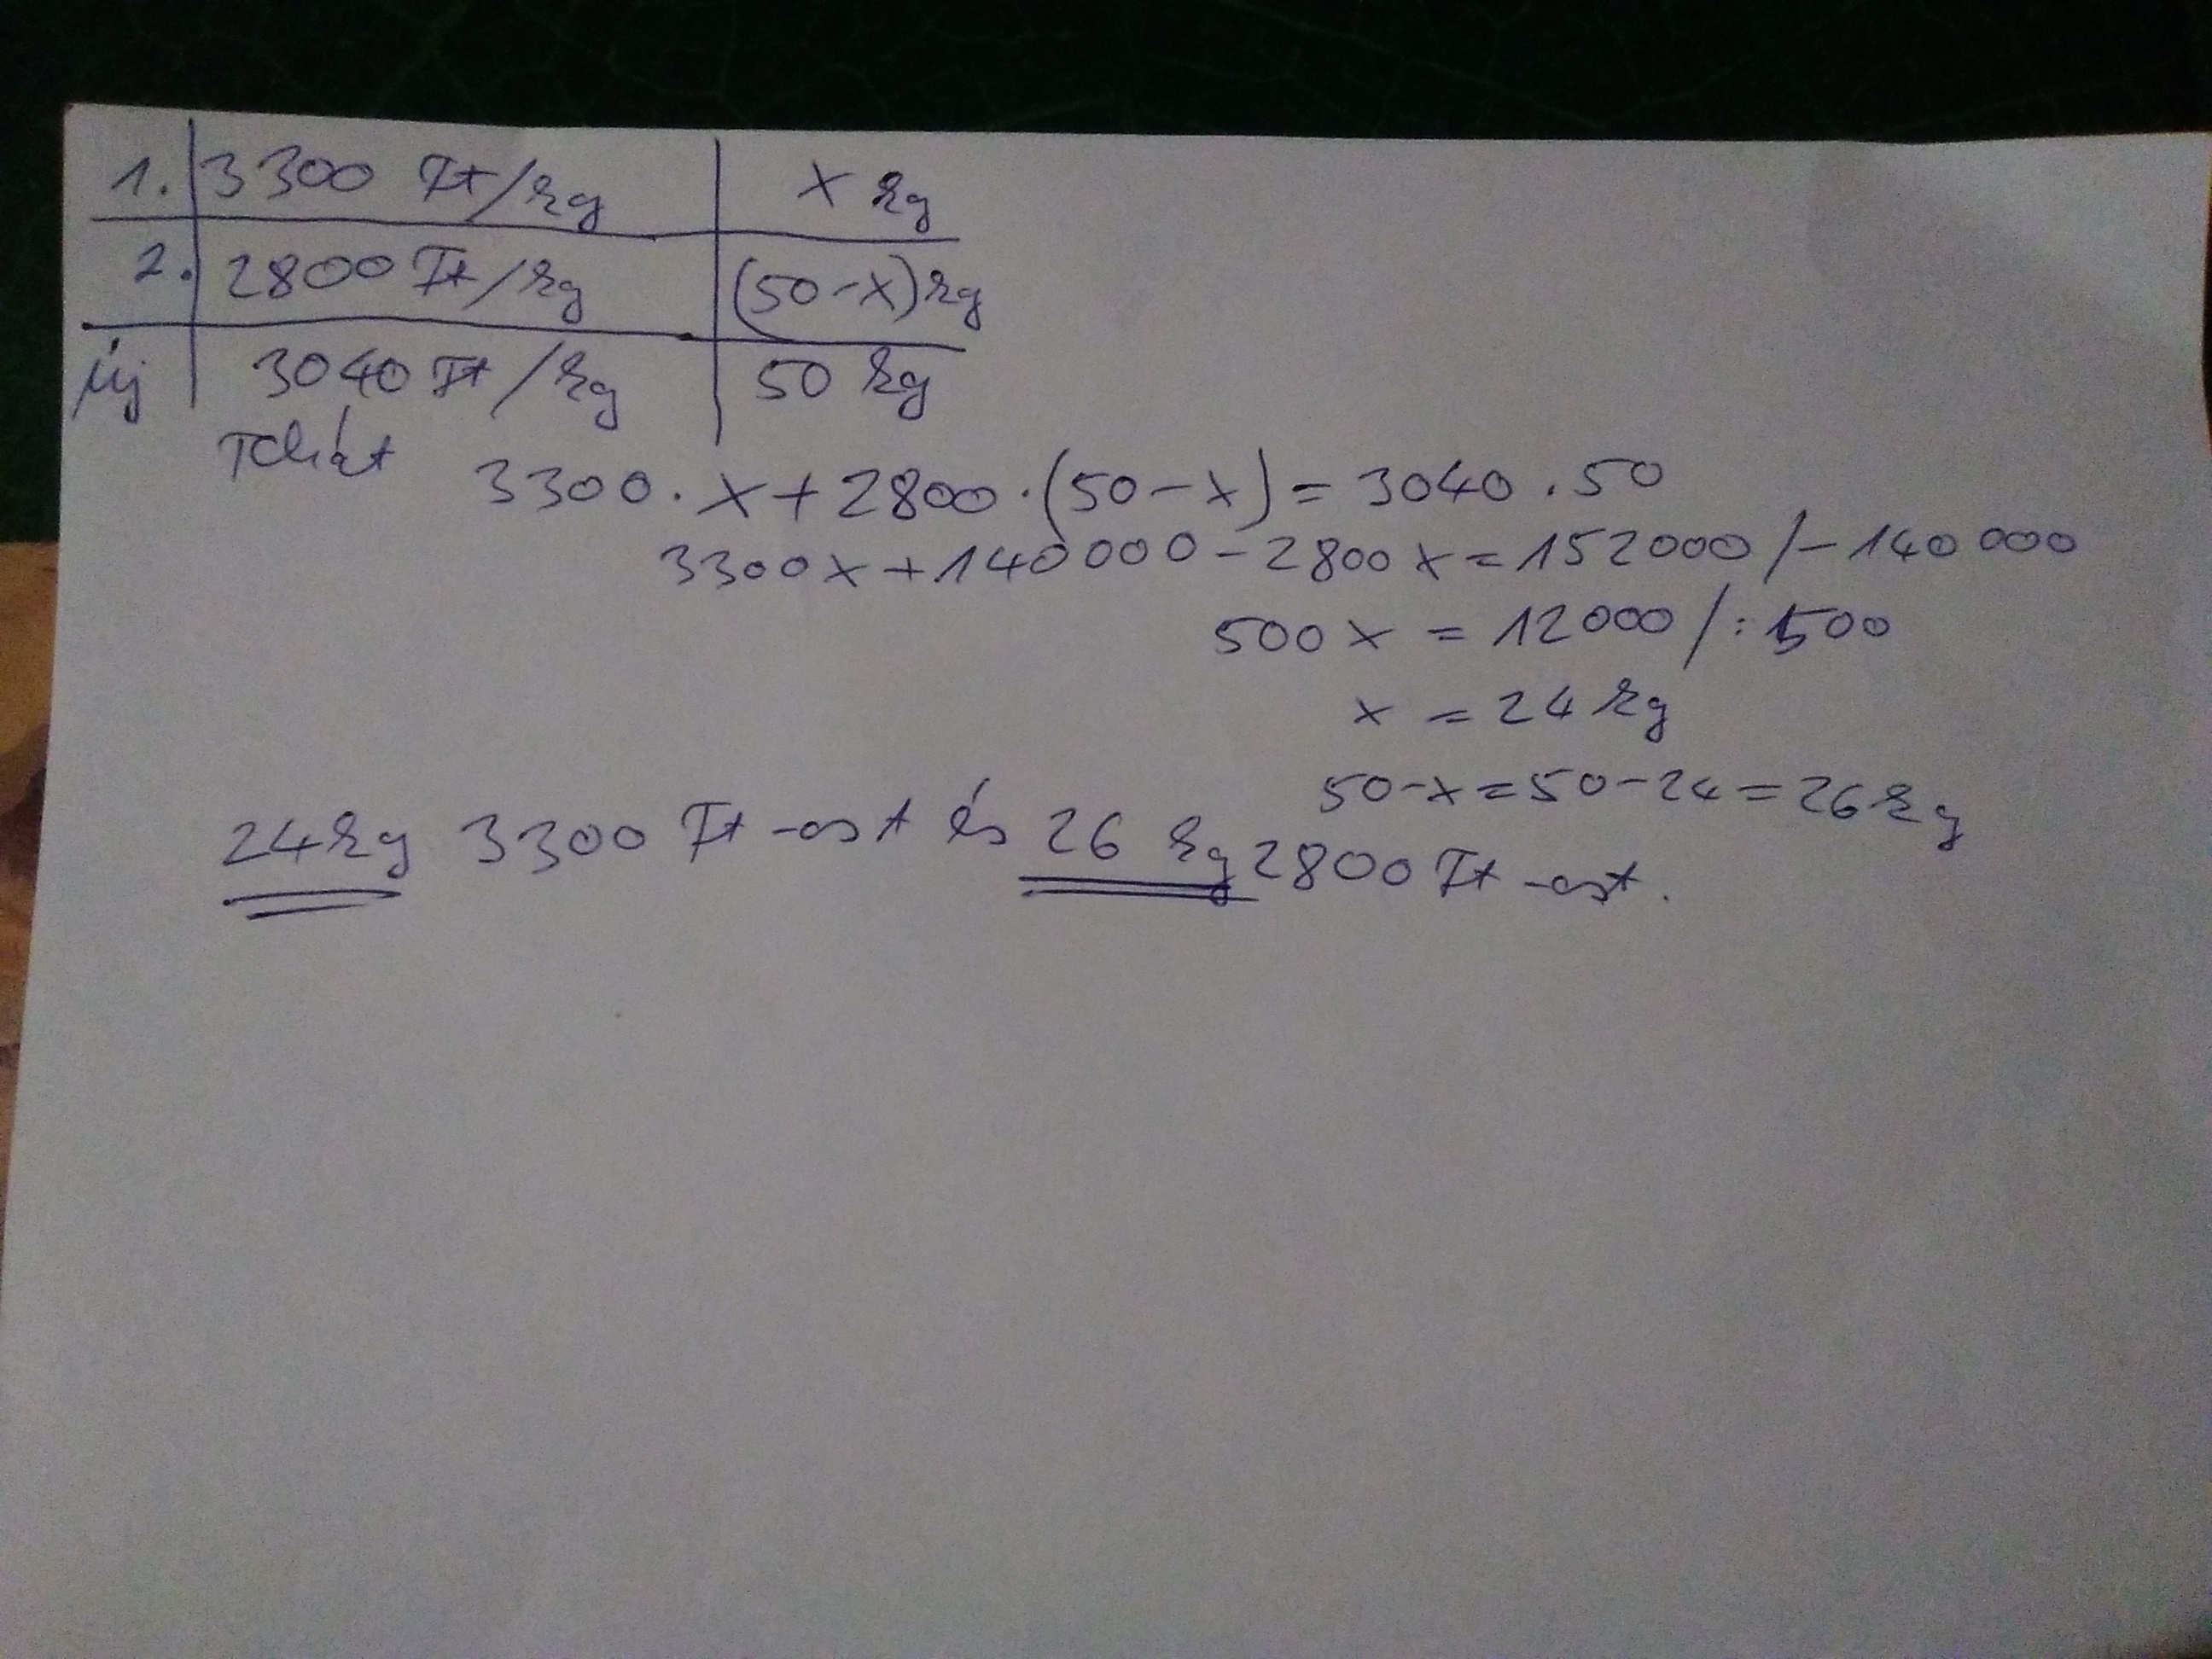 1. 3300 Ft/kg x kg
2. 2800 Ft/kg (50-x) kg
új 3040 Ft/kg 50 kg
Tehát 3300·x+2800·(50-x)=3040·50
3300x+140000-2800x=152000/-140000
500x=12000/:500
x=24kg
50-x=50-24=26kg
24kg 3300 Ft-ost és 26 kg 2800 Ft-ost.